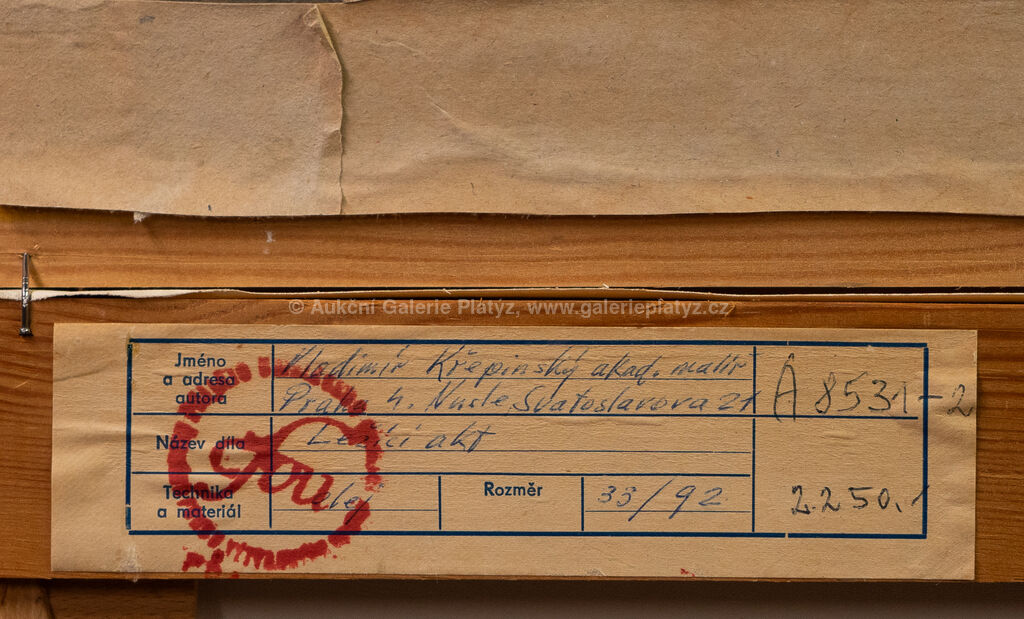 © Aukční Galerie Platýz, www.galerieplatyz.cz
Jméno a adresa autora
Vladimír Křepinský akad. malíř
Praha 4. Nusle, Svatoslavova 21
A 8531-2
Název díla
Ležící akt
Technika a materiál
olej
Rozměr
33/92
2.250,-